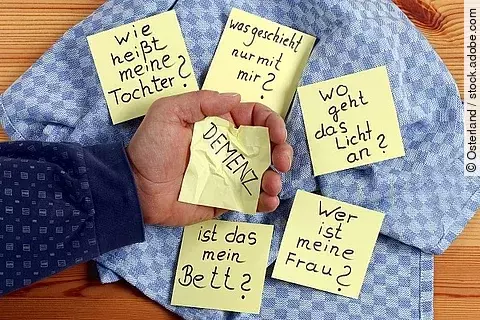 wie
heißt
meine
Tochter?
was geschieht
nur mit
mir?
wo
geht
das
Licht
an?
DEMENZ
ist das
mein
Bett?
Wer
ist
meine
Frau?
© Osterland / stock.adobe.com